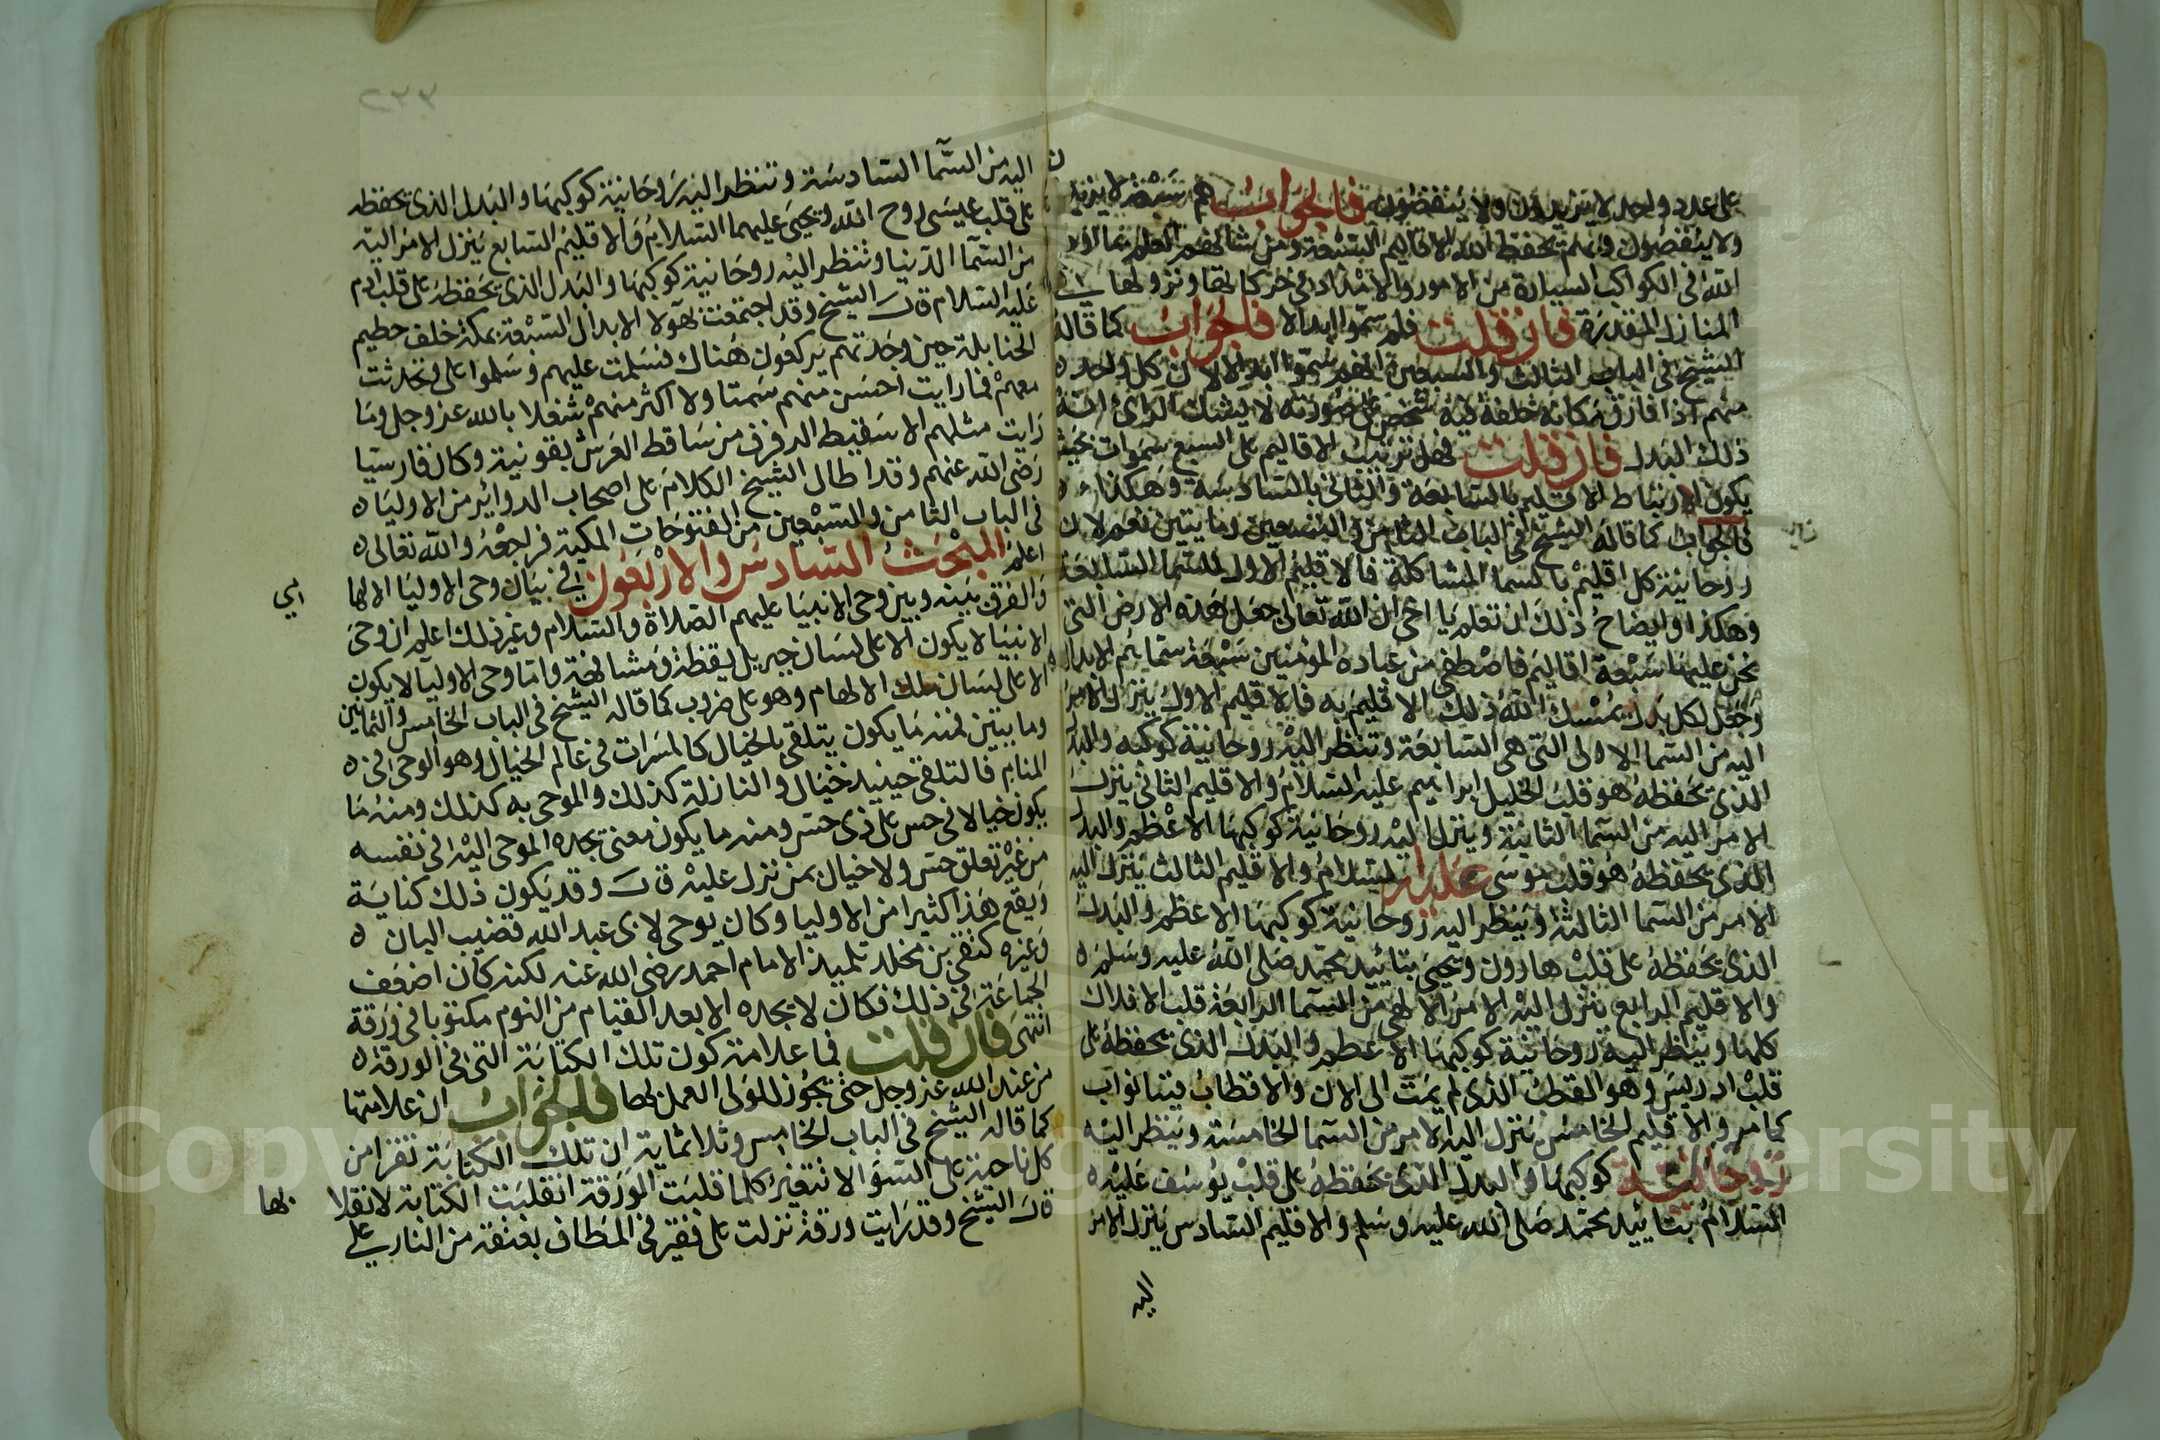 على عدد واحد لا يزيدون ولا ينقصون فالجواب هم سبعة لا يزيدون
ولا ينقصون وبهم يحفظ الله الاقاليم السبعة ومن شانهم العلم بما اودع
الله في الكواكب السيارة من الامور والاسرار في حركاتها ونزولها في
المنازل المقدرة فان قلت فلم سموا ابدالا فالجواب كما قاله
الشيخ في الباب الثالث والسبعين انهم سموا ابدالا لان كل واحد ه
منهم اذا فارق مكانه خلفه فيه شخص على صورته لا يشك الرائ انه
ذلك البدل فان قلت فهل ترتيب الاقاليم على السبع سموات بحيث
يكون ارتباط الاقليم بالسابعة والثاني بالسادسة وهكذا
فالجواب كما قاله الشيخ في الباب الثامن والتسعين وما يتين نعم لان
روحانية كل اقليم بالسما المشاكلة فالاقليم الاول للسما السابعة
وهكذا وايضاح ذلك ان تعلم يا اخي ان الله تعالى جعل هذه الارض التي
نحن عليها سبعة اقاليم فاصطفى من عباده المؤمنين سبعة سماهم الابدال ه
وجعل لكل بدل يمسك الله ذلك الاقليم به فالاقليم الاول ينزل الامر
اليه من السما الاولى التي هي السابعة وتنظر اليه روحانية كوكبه والبدل
الذي يحفظه هو قلب الخليل ابراهيم عليه السلام والاقليم الثاني ينزل
الامر اليه من السما الثانية وينزل اليه روحانية كوكبها الاعظم والبدل
الذي يحفظه هو قلب موسى عليه السلام والاقليم الثالث ينزل اليه
الامر من السما الثالثة وينظر اليه روحانية كوكبها الاعظم والبدل
الذي يحفظه على قلب هارون ويحيى بتائيد محمد صلى الله عليه وسلم ه
والاقليم الرابع ينزل اليه الامر الالهي من السما الرابعة قلب الافلاك
كلها وينظر اليه روحانية كوكبها الاعظم والبدل الذي يحفظه على
قلب ادريس وهو القطب الذي لم يمت الى الان والاقطاب فينا نواب
كما مر والاقليم الخامس ينزل اليه الامر من السما الخامسة وينظر اليه
روحانية كوكبها والبدل الذي يحفظه على قلب يوسف عليه ه
السلام بتائيد محمد صلى الله عليه وسلم والاقليم السادس ينزل الامر
اليه
٢٣٣
اليه من السما السادسة وتنظر اليه روحانية كوكبها والبدل الذي يحفظه
على قلب عيسى روح الله ويحيى عليهما السلام والاقليم السابع ينزل الامر اليه
من السما الدنيا وتنظر اليه روحانية كوكبها والبدل الذي يحفظه على قلب ادم
عليه السلام قال الشيخ وقد اجتمعت بهولا الابدال السبعة بمكة خلف حطيم
الحنابلة حين وجدتهم يركعون هناك فسلمت عليهم وسلموا على وتحدثت
معهم فما رايت احسن منهم سمتا ولا اكثر منهم شغلا بالله عز وجل وما
رايت مثلهم الا سقيط الرفرف من ساقط العرش بقونية وكان فارسيا
رضي الله عنهم وقد اطال الشيخ الكلام على اصحاب الدوائر من الاوليا ه
في الباب الثامن والسبعين من الفتوحات المكية فراجعه والله تعالى ه
اعلم المبحث السادس والاربعون في بيان وحي الاوليا الالها
مي
والفرق بينه وبين وحي الانبيا عليهم الصلاة والسلام وغير ذلك اعلم ان وحي
الانبيا لا يكون الا على لسان جبريل يقظة ومشافهة واما وحي الاوليا لا يكون
الا على لسان ملك الالهام وهو على ضروب كما قاله الشيخ في الباب الخامس والثمانين
وما يتين فمنه ما يكون يتلقى بالخيال كالمسرات في عالم الخيال وهو الوحي في ه
المنام فالتلقي حينيد خيال والنازلة كذلك والموحى به كذلك ومنه ما
يكون خيالا في حس على ذي حس ومنه ما يكون معنى يجده الموحى اليه في نفسه
من غير تعلق حس ولا خيال بمن نزل عليه قال وقد يكون ذلك كتابة
ويقع هذا كثيرا من الاوليا وكان يوحى لابي عبد الله قضيب البان ه
وغيره كتقي بن مخلد تلميذ الامام احمد رضي الله عنه لكنه كان اضعف
الجماعة في ذلك فكان لا يجده الا بعد القيام من النوم مكتوبا في ورقة
انتهى فان قلت فما علامة كون تلك الكتابة التي في الورقة ه
من عند الله عز وجل حتى يجوز للولي العمل بها فالجواب ان علامتها
كما قاله الشيخ في الباب الخامس وثلاثماية ان تلك الكتابة تقرا من
كل ناحية على السوا لا تتغير كلما قلبت الورقة انقلبت الكتابة لانقلا
بها
قال الشيخ وقد رايت ورقة نزلت على فقير في المطاف بعتقه من النار على